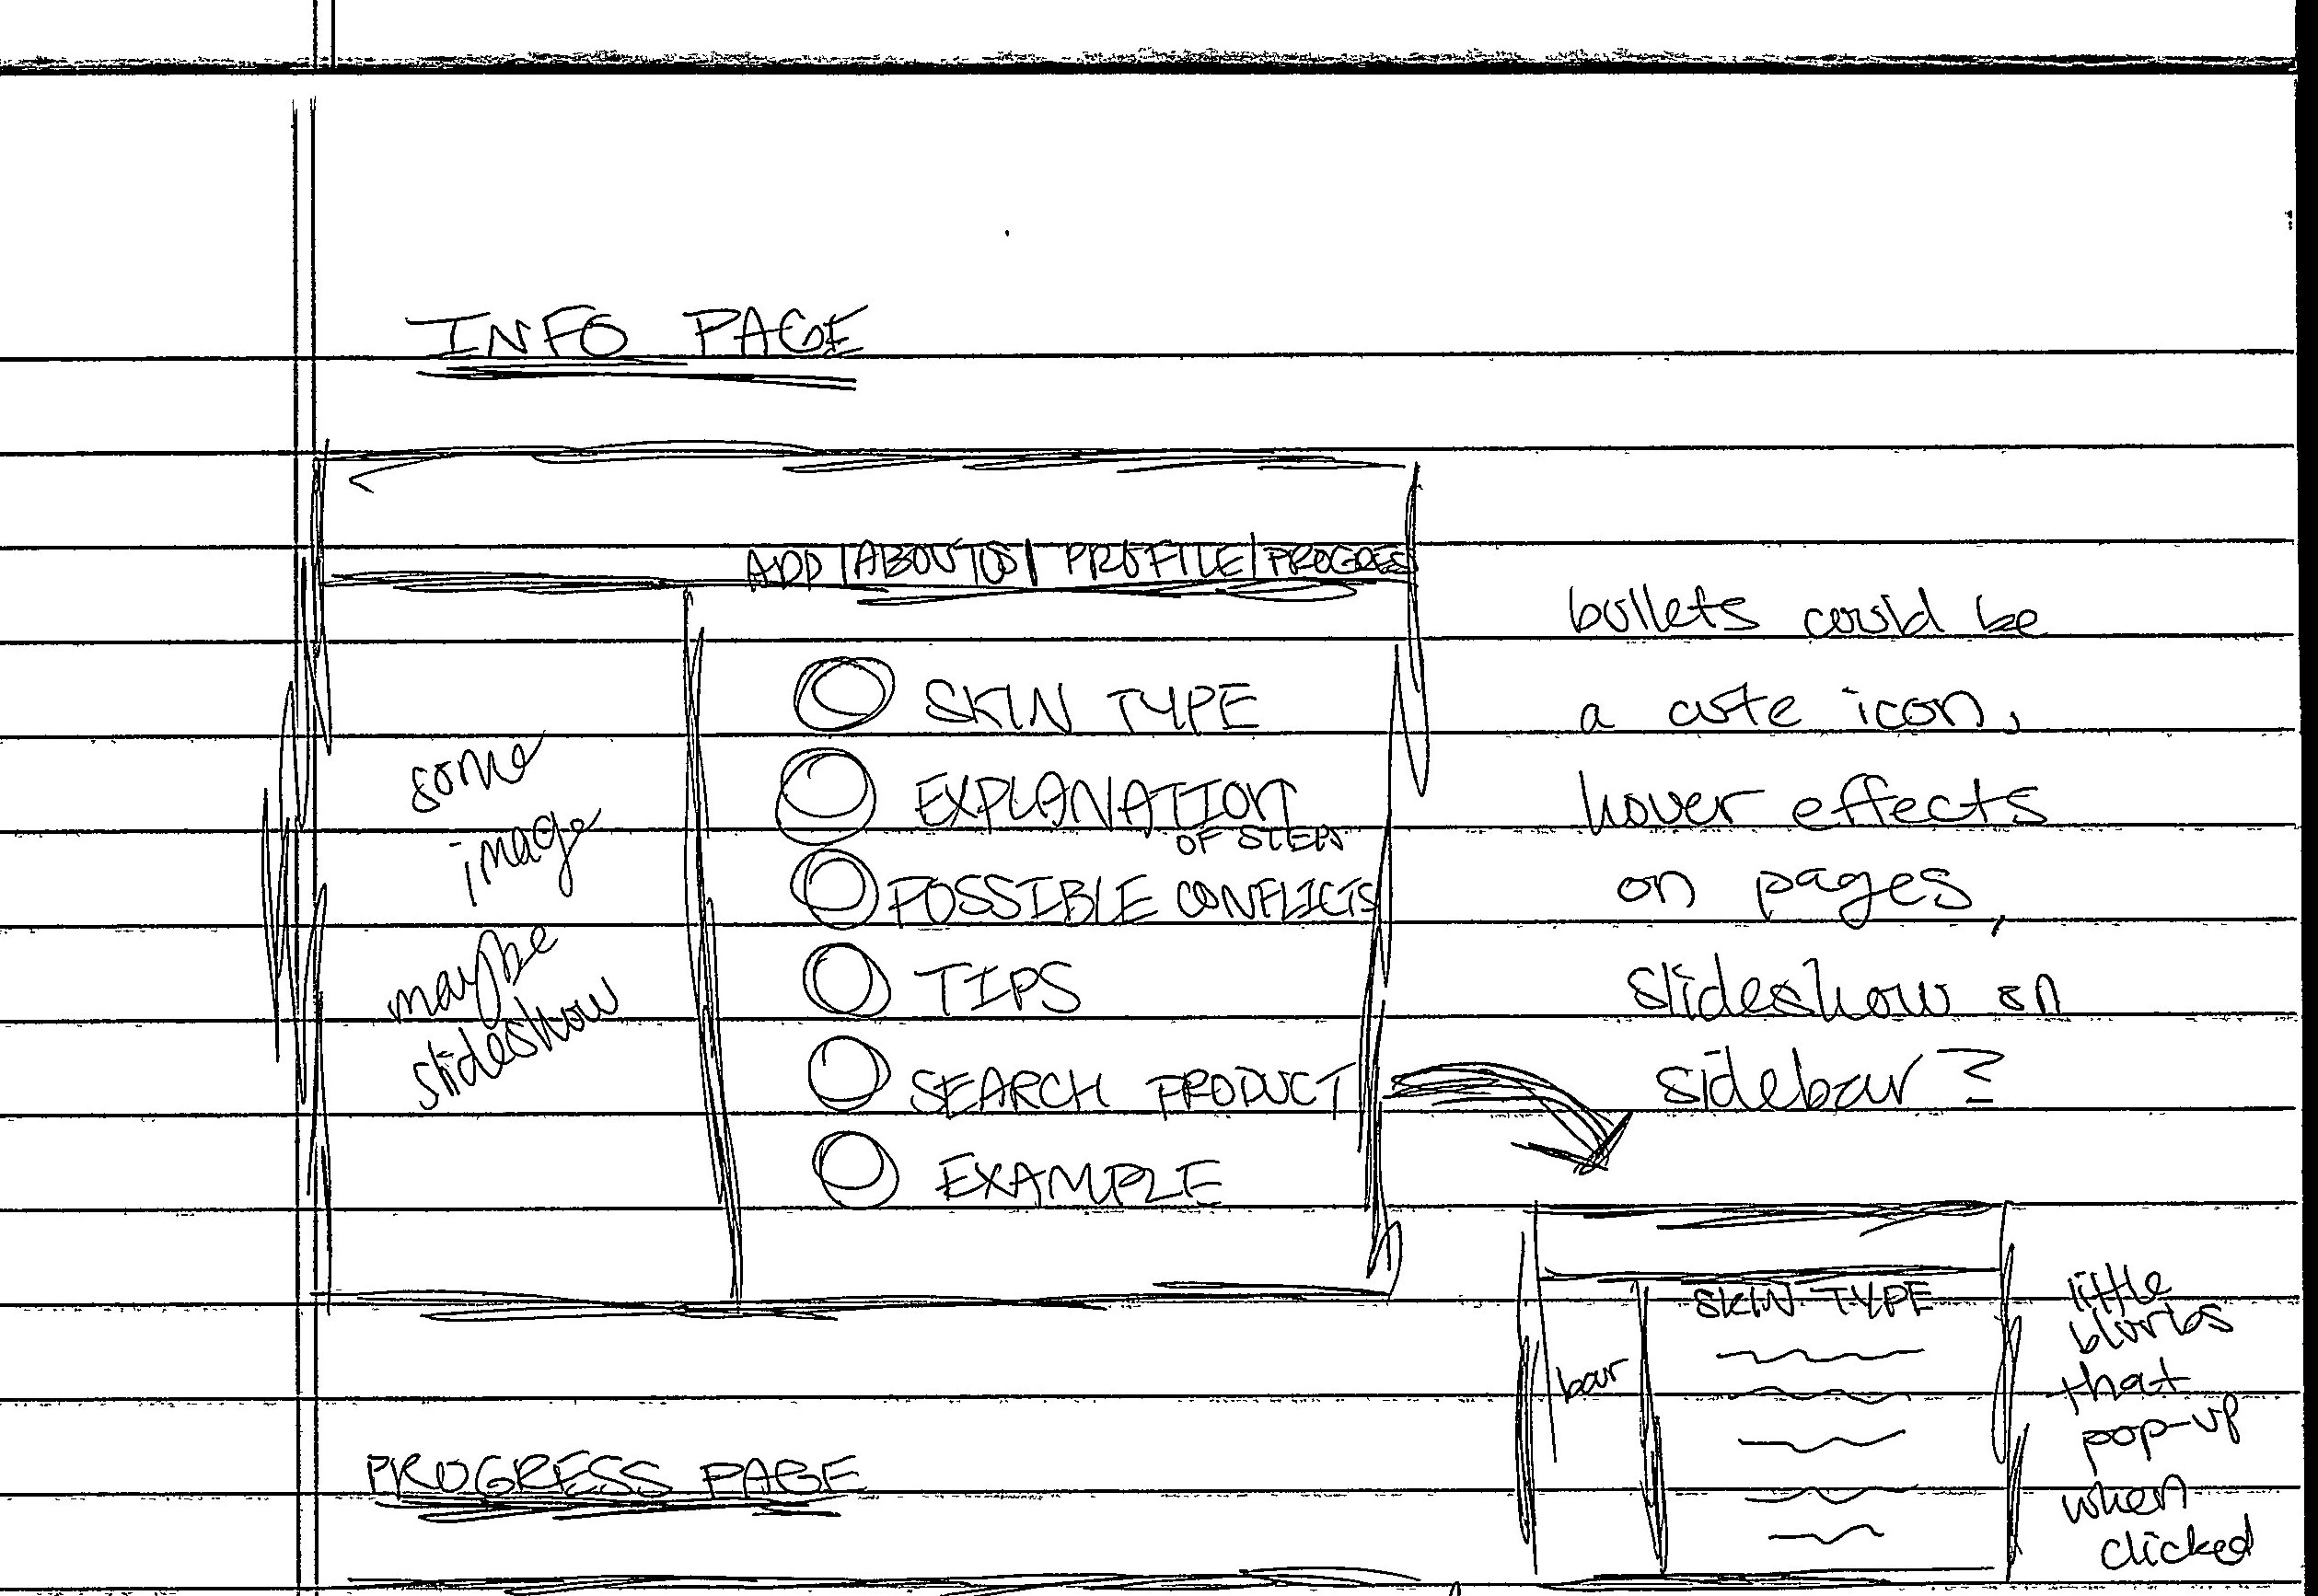 INFO PAGE
ADD | ABOUT US | PROFILE | PROGRESS
some
image
maybe
slideshow
SKIN TYPE
EXPLANATION
OF STEPS
POSSIBLE CONFLICTS
TIPS
SEARCH PRODUCT
EXAMPLE
bullets could be
a cute icon,
hover effects
on pages,
slideshow on
sidebar?
bar
SKIN TYPE
little
blurbs
that
pop-up
when
clicked
PROGRESS PAGE